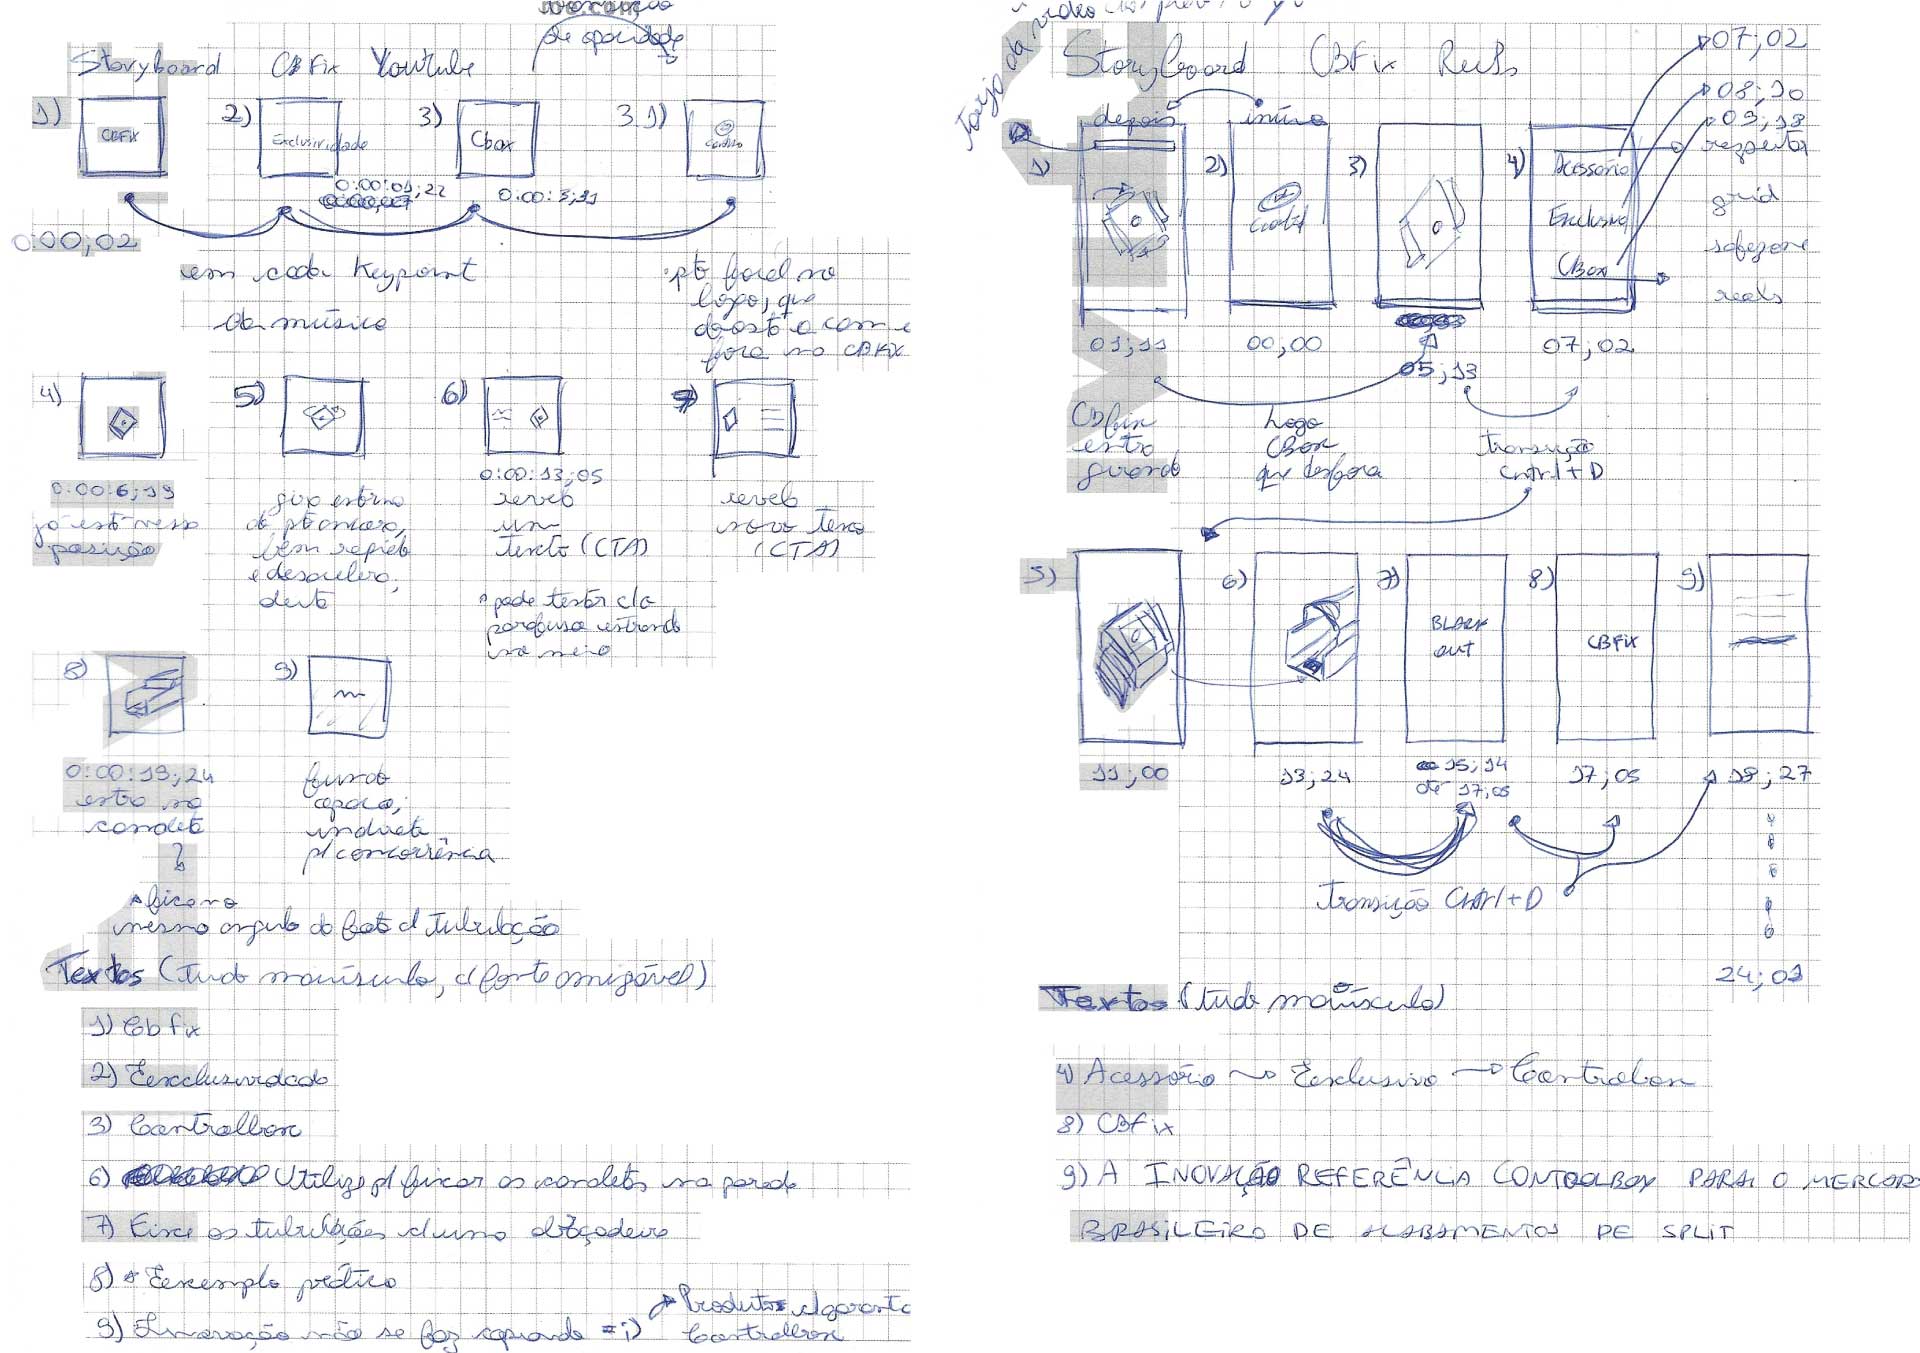 de opacidade
Storyboard CBFix Youtube
1)
CBFIX
2)
Exclusividade
3)
Cbox
3.1)
0:00:01;22
0:00:3;11
0:00;02
em cada Keypoint
da música
pt focal no
logo, que
fora no CBFIX
4)
5)
6)
7)
0:00:6;19
já est nessa
posição
giro extremo
bem rapido
e desacelera,
0:00:13;05
revela
um
texto (CTA)
pode testar c/a
parafusa entrando
no meio
revela
novo texo
(CTA)
8)
9)
0:00:19;24
entra na
canaleta
fundo
opaco,
indireta
p/ concorrência
ficar no
mesmo angulo da foto c/ tubulação
Textos (tudo maiúsculo, c/ fonte amigável)
1) Cbfix
2) Exclusividade
3) Controlbox
6) Utilize p/ fixar as canaletas na parede
7) Fixe as tubulações c/ uma abraçadeira
8) Exemplo prático
9) Inovação não se faz copiando =;)
Produtos c/ garantia
Controlbox
Storyboard CBFix Reels
07;02
08;10
09;18
respeita
grid
safezone
reels
depois
início
1)
2)
3)
4)
Acessório
Exclusivo
CBox
01;11
00;00
05;13
07;02
CBfix
entra
girando
Logo
CBox
que desfoca
transição
Cntrl+D
5)
6)
7)
BLACK
out
8)
CBFIX
9)
11;00
13;24
15;14
até 17;05
17;05
18;27
transição Cntrl+D
24;01
Textos (tudo maiúsculo)
4) Acessório → Exclusivo → Controlbox
8) CBfix
9) A INOVAÇÃO REFERÊNCIA CONTROLBOX PARA O MERCADO
BRASILEIRO DE ACABAMENTOS DE SPLIT